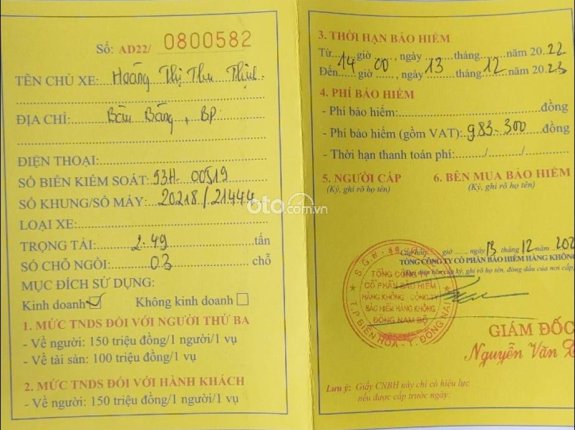 Số: AD22/ 0800582
TÊN CHỦ XE: Hoàng Thị Thu
ĐỊA CHỈ: Bàu Bàng, BP
ĐIỆN THOẠI:
SỐ BIỂN KIỂM SOÁT: 93H-00519
SỐ KHUNG/SỐ MÁY: 20218/21444
LOẠI XE:
TRỌNG TẢI: 2.49 tấn
SỐ CHỖ NGỒI: 03 chỗ
MỤC ĐÍCH SỬ DỤNG:
Kinh doanh Không kinh doanh
1. MỨC TNDS ĐỐI VỚI NGƯỜI THỨ BA
- Về người: 150 triệu đồng/1 người/1 vụ
- Về tài sản: 100 triệu đồng/1 vụ
2. MỨC TNDS ĐỐI VỚI HÀNH KHÁCH
- Về người: 150 triệu đồng/1 người/1 vụ
3. THỜI HẠN BẢO HIỂM
Từ 14 giờ 00, ngày 13 tháng 12 năm 2022
Đến giờ ngày tháng năm 2023
4. PHÍ BẢO HIỂM
- Phí bảo hiểm: đồng
- Phí bảo hiểm (gồm VAT): 983.300 đồng
- Thời hạn thanh toán phí: / /
5. NGƯỜI CẤP 6. BÊN MUA BẢO HIỂM
(Ký, ghi rõ họ tên) (Ký, ghi rõ họ tên)
giờ ngày 13 tháng 12 năm 202
TỔNG CÔNG TY CỔ PHẦN BẢO HIỂM HÀNG KHÔNG
TỔNG CÔNG TY
CỔ PHẦN BẢO HIỂM
HÀNG KHÔNG
BẢO HIỂM HÀNG KHÔNG
ĐÔNG NAM BỘ
T.P BIÊN HÒA - T. ĐỒNG NAI
GIÁM ĐỐC
Nguyễn Văn
Lưu ý: Giấy CNBH này chỉ có hiệu lực
nếu được cấp trước ngày:
oto.com.vn